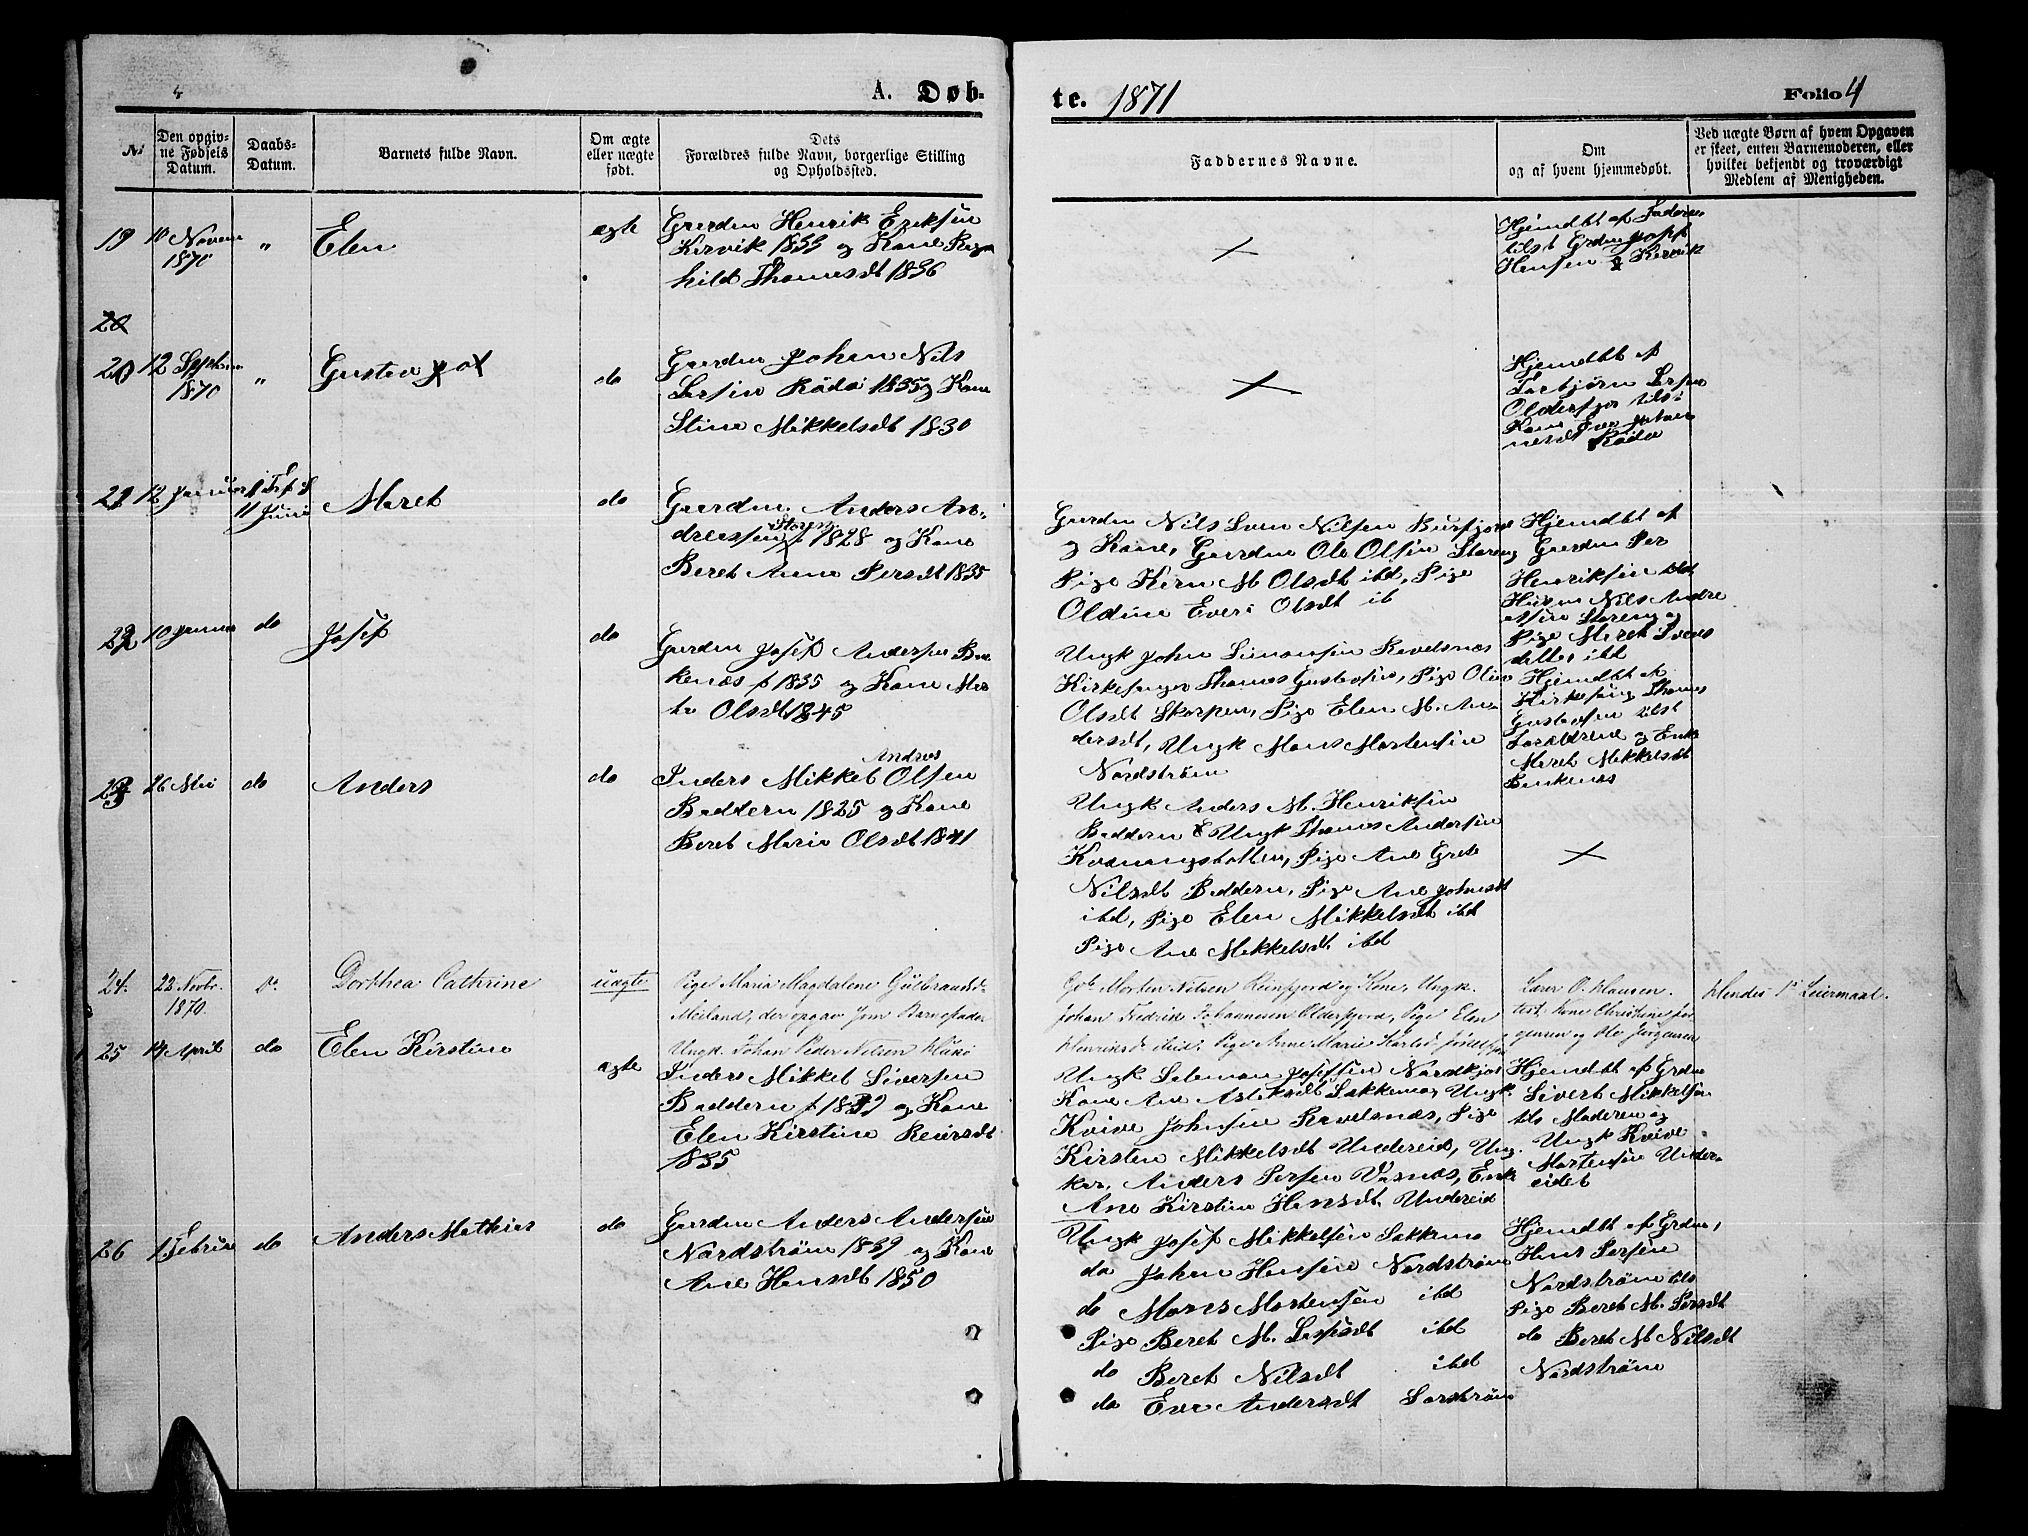 4
A. Døb-
te. 1871
Folio 4
No
Den opgiv-
ne Fødsels
Datum.
Daabs-
Datum.
Barnets fulde Navn.
Om ægte
eller uægte
født.
Dets
Forældres fulde Navn, borgerlige Stilling
og Opholdssted.
Faddernes Navne.
Om
og af hvem hjemmedøbt.
Ved uægte Børn af hvem Opgaven
er skeet, enten Barnemoderen, eller
hvilket bekjendt og troværdigt
Medlem af Menigheden.
19
10 Novem
1870
"
Elen
ægte
Gaardm Henrik Eriksen
Kervik 1833 og Kone Rag
hild Thomasdt 1836
Hjemdbt af Faderen
tilst Grdm Josef
Hansen Kervik
20
20
12 Septem
1870
"
Gustav
do
Gaardm Johan Nils
Larsen Rødø 1835 og Kone
Stine Mikkelsdt 1830
Hjemdbt af
Torbjørn Larsen
Olderfjor tils
Kone Eva Johan
nesdt Rødø
21
12 Januar
11 Juni
Maret
do
Gaardm. Anders An-
dreassen Storeng 1828 og Kone
Beret Anne Persdt 1835
Gaardm Nils Sven Nilsen Burfjord
og Kone, Gaardm Ole Olsen Storeng
Pige Karen M Olsdt ibd, Pige
Oldine Eva Olsdt ib
Hjemdbt af
Gaardm Per
Henriksen tilst
Husm Nils Andre
assen Storeng og
Pige Maret Svens
datter ibd
22
10 Januar
do
Josef
do
Gaardm Josef Andersen Bak
kenæs f 1835 og Kone Mar
ta Olsdt 1845
Ungk John Simonsen Ravelsnæs
Kirkesanger Thomas Gustavsen, Pige Oline
Olsdt Skorpen, Pige Elen M. An
dersdt, Ungk Mons Mortensen
Nordstrøm
Hjemdbt af
Kirkesang Thomas
Gustavsen tilst
Forældrene og Enke
Maret Mikkelsdt
Bakkenæs
23
26 Mai
do
Anders
do
Andres
Inders Mikkel Olsen
Baddern 1825 og Kone
Beret Maria Olsdt 1841
Ungk Anders M. Henriksen
Baddern & Ungk Thomas Andersen
Kvænangsbotten, Pige Ane Grete
Nilsdt Baddern, Pige Ane Johnsdt
ibd, Pige Elen Mikkelsdt ibd
Pige Ane Mikkelsdt ibd
24.
22 Novbr.
1870.
Do
Dorthea Cathrine
uægte
Pige Maria Magdalene Gulbrandsd.
Meiland, der opgav som Barnefader
Ungk. Johan Peder Nilsen
Gdb. Morten Nilsen Reinfjord og Kone, Ungk.
Johan Fredrik Johannesen Olderfjord, Pige Elen
Henriksd. ibid. Pige Anne Marie
Lærer O. Hansen.
test. Kone Christine Jør
gensen og Ole Jørgensen
Hendes 1ste Leiermaal.
25
14 April
do
Elen Kirstine
ægte
Inders Mikkel Siversen
Baddern f 1839 og Kone
Elen Kirstine Reiersdt
1835
Ungk Salomon Josefsen Nordkjos
Kone Ane Aslaksdt Sakkemo, Ungk
Kvive Johnsen Ravelsnæs, Pige
Kirsten Mikkelsdt Undereid, Ung-
kar, Anders Persen Vasnæs, Enke
Ane Kirstine Hansdt. Undereid
Hjemdbt af Grdm
Sivert Mikkelsen
tils Moderen og
Ungk Kvive
Mortensen Under-
eidet
26
1 Februar
do
Anders Mathias
do
Gaardm Anders Andersen
Nordstrøm 1839 og Kone
Ane Hansdt 1850
Ungk Josef Mikkelsen Sakkemo
do John Hansen Nordstrøm
do Mons Mortensen ibd
Pige Beret M. Larsdt ibd
do Beret Nilsdt ibd
do Eva Andersdt Sørstrøm
Hjemdbt af Grdm,
Hans Persen
Nordstrøm tils
Pige Beret M. Larsdt
do Beret M Nilsdt
Nordstrøm